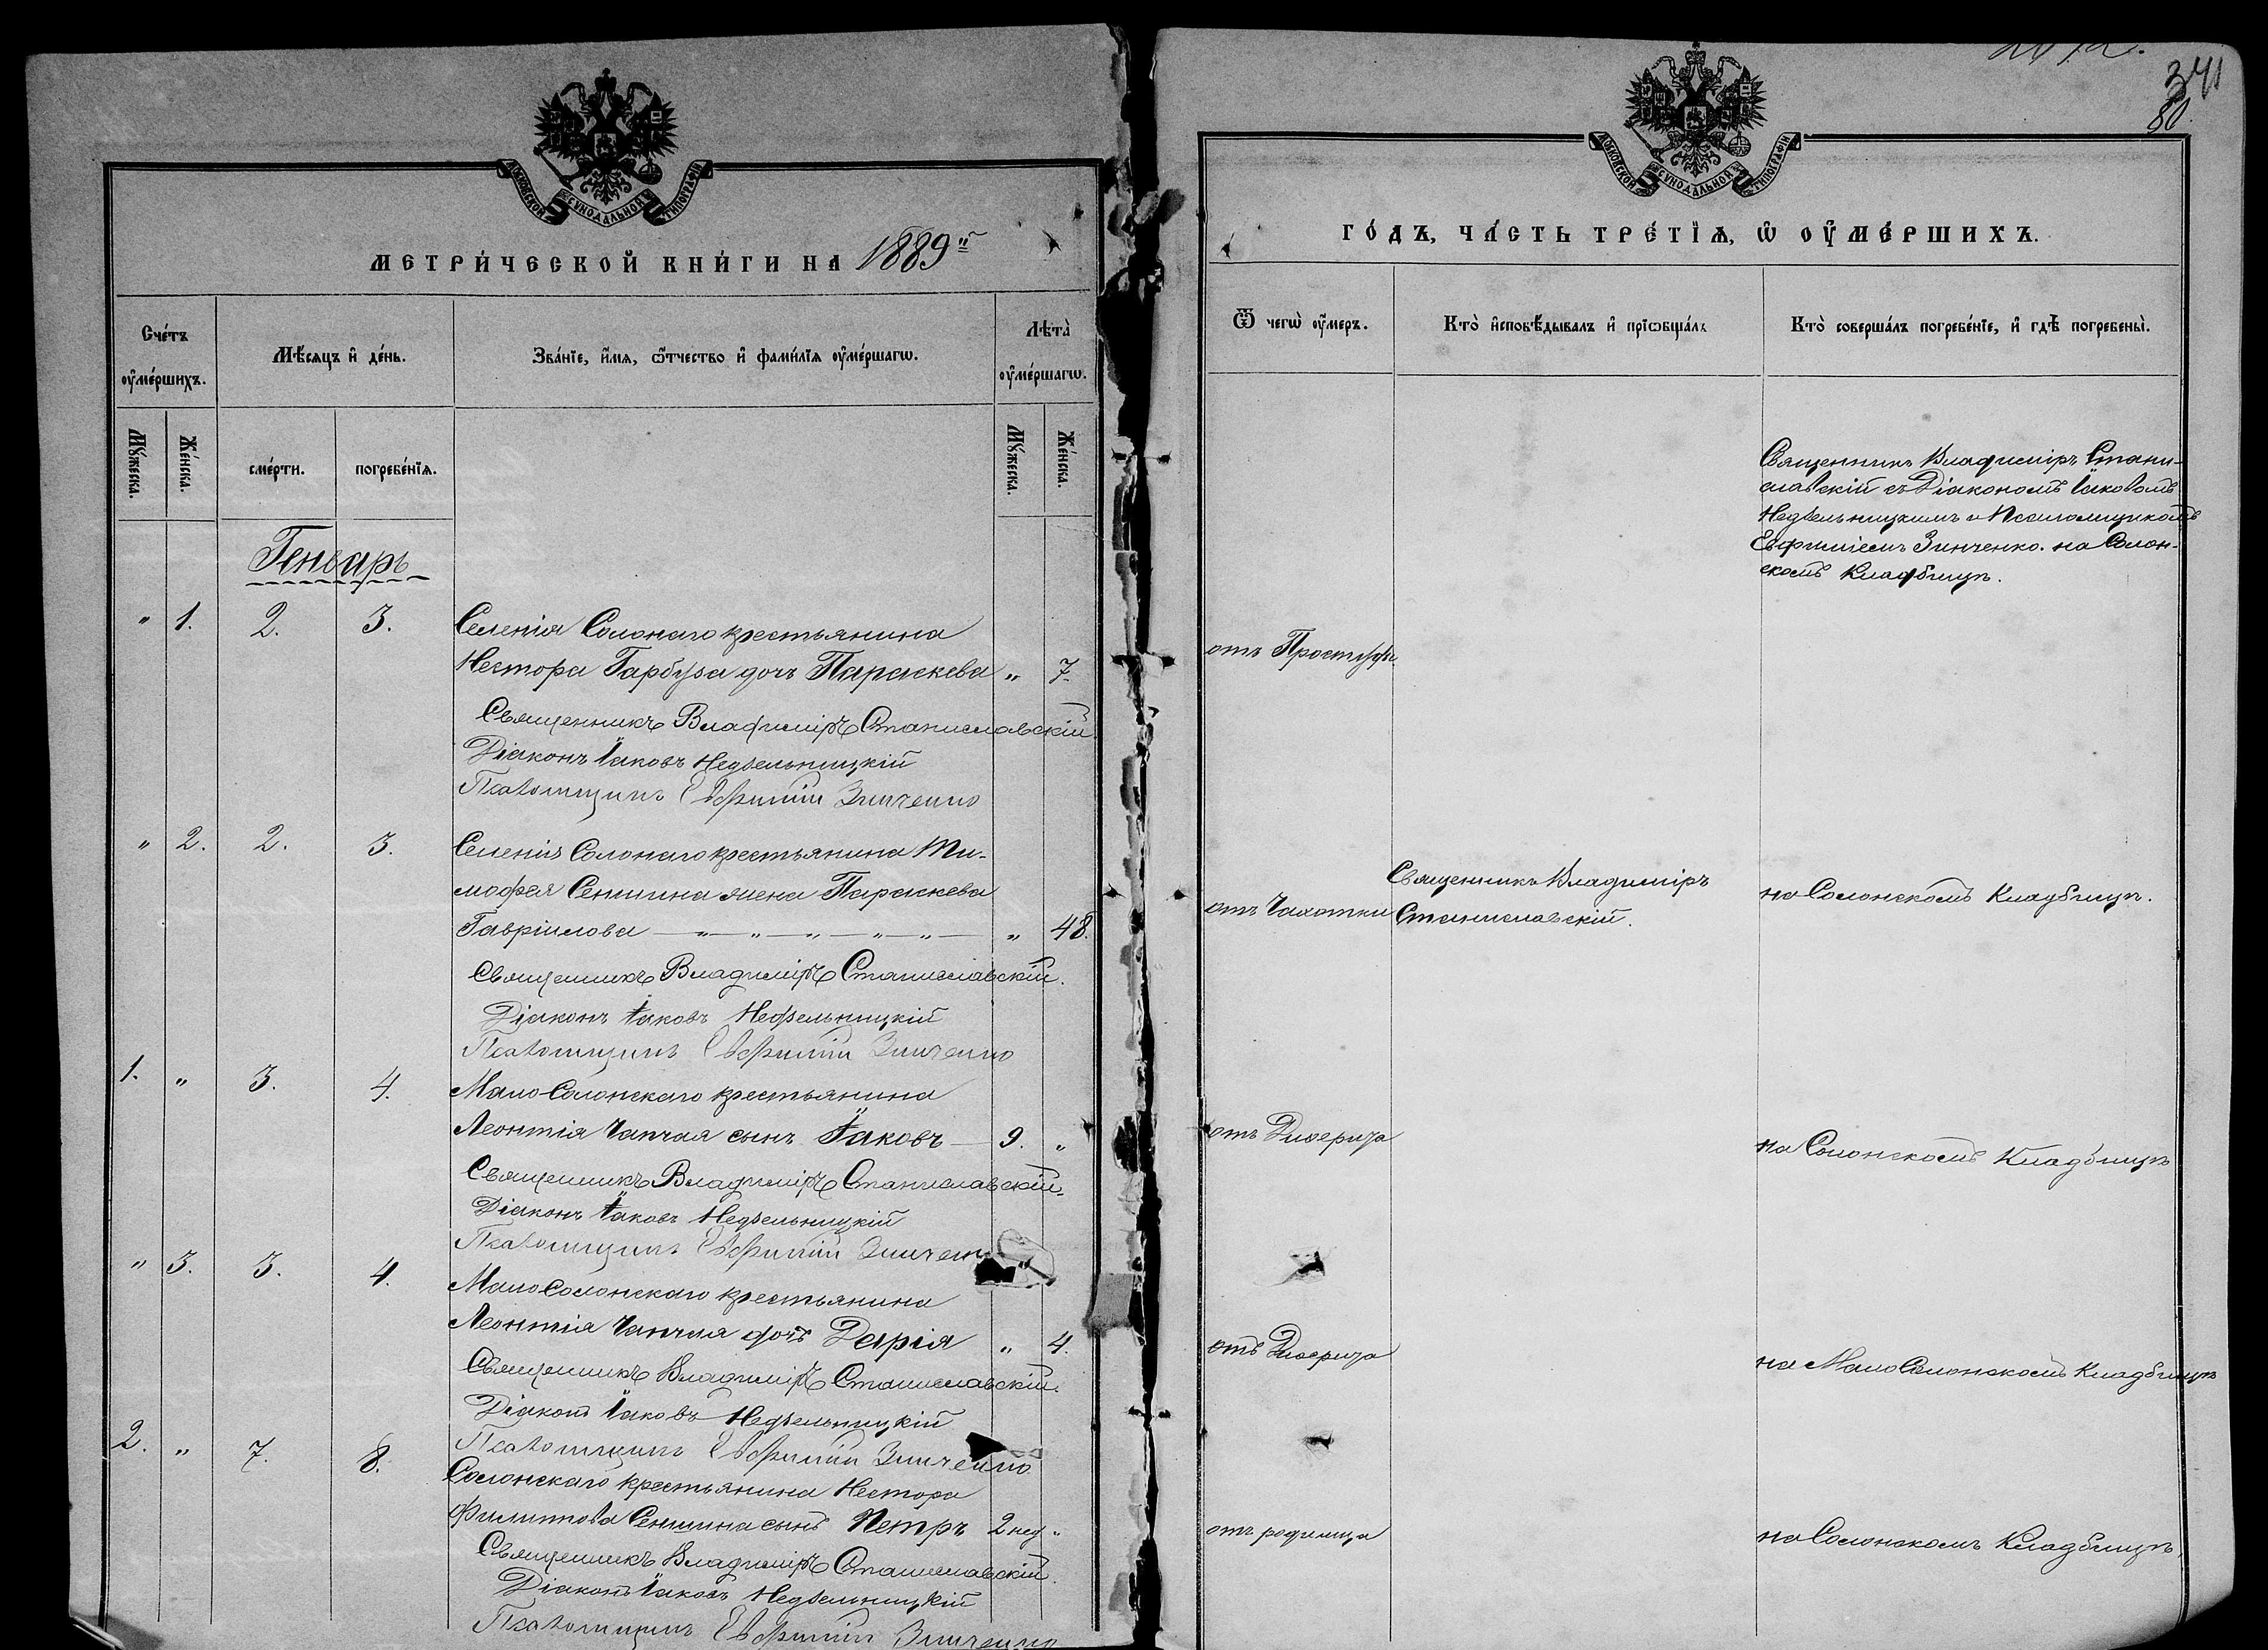 МОСКОВСКОЙ СУНОДАЛЬНОЙ ТИПОГРАФІИ
МЕТРИ́ЧЕСКОЙ КНИ́ГИ НА 1889й
Сче́тъ ᲂу҆ме́ршихъ.
Мѣ́сяцъ и҆ де́нь.
Зва́нїе, и҆́мѧ, ѻ҆́тчество и҆ фами́лїѧ ᲂу҆ме́ршагѡ.
Лѣта̀ ᲂу҆ме́ршагѡ.
Мꙋ́жеска.
Же́нска.
сме́рти.
погребе́нїѧ.
Мꙋ́жеска.
Же́нска.
Генварь
" 1. 2. 3. Селенія Солонаго крестьянина
Нестора Гарбуза дочь Параскева " 7.
Священникъ Владиміръ Станиславскій
Діаконъ Іаковъ Недѣельницкій
Псаломщикъ Евфимій Зинченко
" 2. 2. 3. Селенія Солонаго крестьянина Ти-
мофея Сенчина жена Параскева
Гавріилова — " — " — " — " — " — " 48.
Священникъ Владиміръ Станиславскій.
Діаконъ Іаковъ Недѣельницкій
Псаломщикъ Евфимій Зинченко
1. " 3. 4. Мало-Солонскаго крестьянина
Леонтія Чапчая сынъ Іаковъ — 9. "
Священникъ Владиміръ Станиславскій.
Діаконъ Іаковъ Недѣельницкій
Псаломщикъ Евфимій Зинчен
" 3. 3. 4. Мало Солонскаго крестьянина
Леонтія Чапчая дочь Дарія " 4.
Священникъ Владиміръ Станиславскій.
Діаконъ Іаковъ Недѣельницкій
Псаломщикъ Евфимій Зинченко
2. " 7. 8. Солонскаго крестьянина Нестора
Филиппова Сенчина сынъ Петръ 2 нед "
Священникъ Владиміръ Станиславскій.
Діаконъ Іаковъ Недѣельницкій
Псаломщикъ Евфимій Зинченко
341
80.
МОСКОВСКОЙ СУНОДАЛЬНОЙ ТИПОГРАФІИ
ГО́ДЪ, ЧА́СТЬ ТРЕ́ТЇѦ, Ѡ҆ ОУ҆МЕ́РШИХЪ.
Ѿ чегѡ̀ ᲂу҆́меръ.
Кто̀ и҆сповѣ́дывалъ и҆ прїѡбща́лъ
Кто̀ соверша́лъ погребе́нїе, и҆ гдѣ̀ погребены̀.
Священникъ Владиміръ Стани-
славскій съ Діакономъ Іаковомъ
Недѣельницкимъ и Псаломщикомъ
Евфиміемъ Зинченко. на Солон-
скомъ Кладбищѣ.
отъ Простуды.
отъ Чахотки
Священникъ Владиміръ
Станиславскій.
на Солонскомъ Кладбищѣ.
отъ Диферита
на Солонскомъ Кладбищѣ
отъ Диферита
на Мало Солонскомъ Кладбищѣ
отъ родимца
на Солонскомъ Кладбищѣ